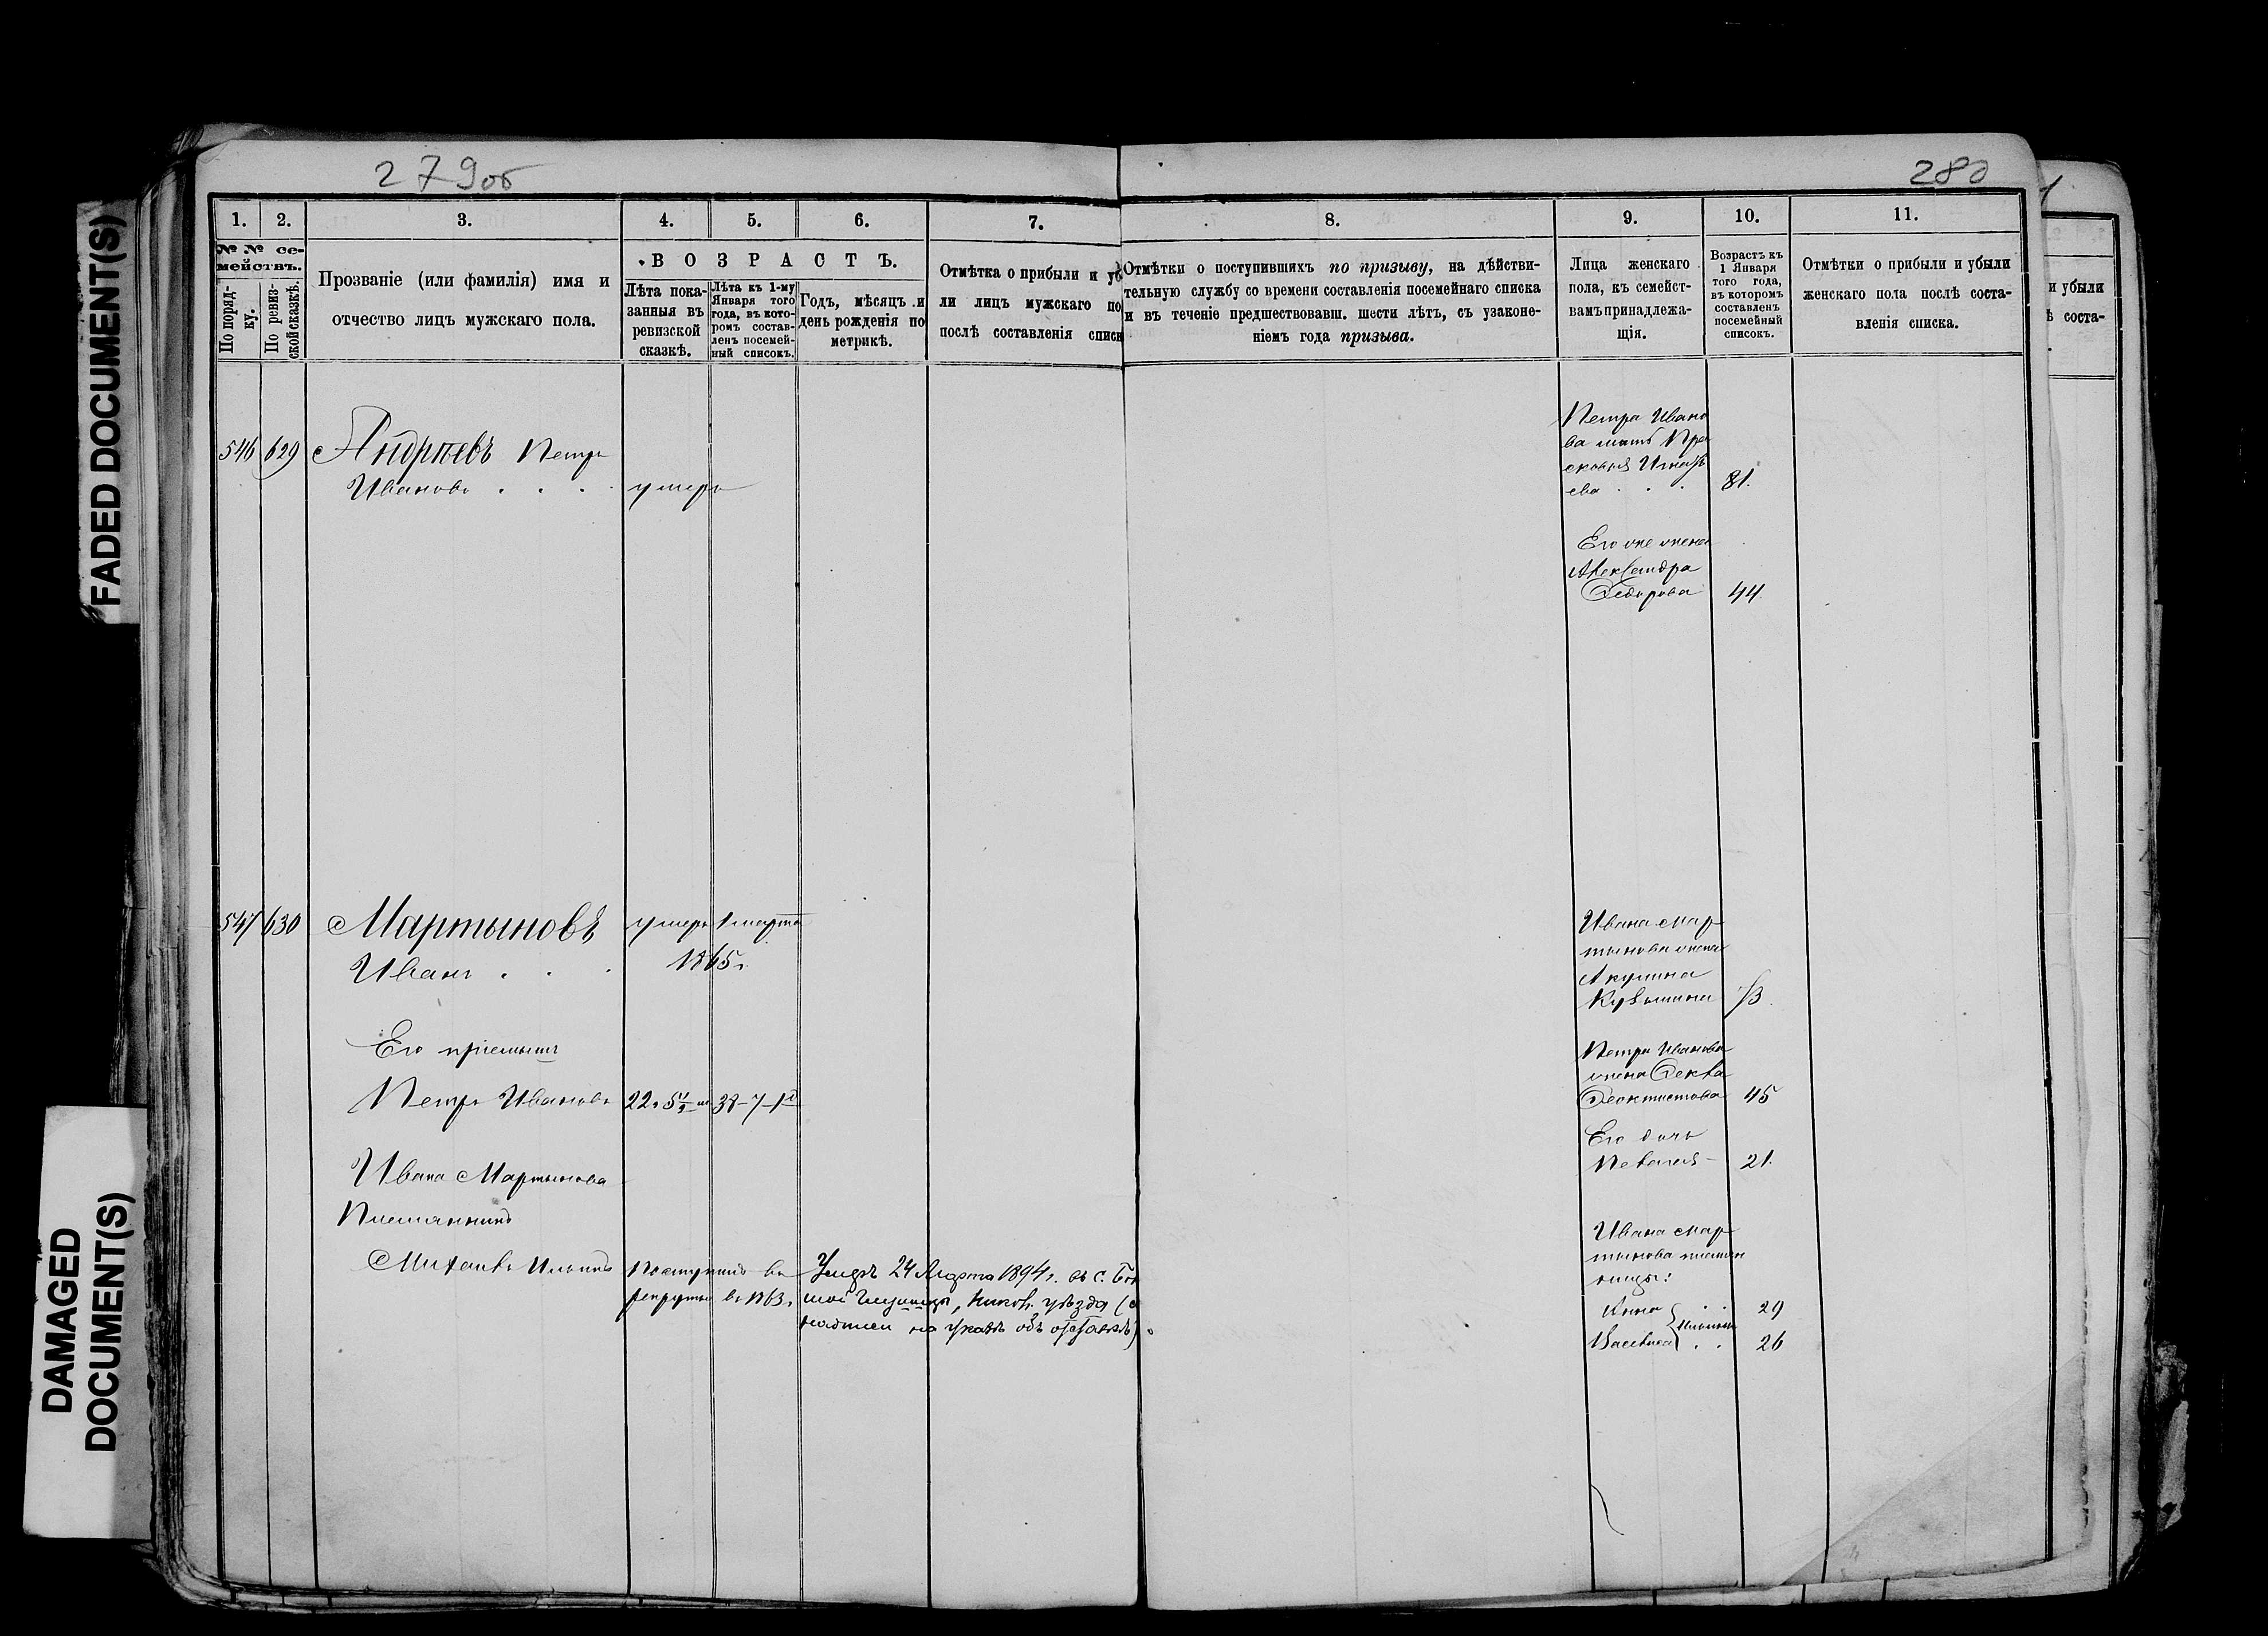 FADED DOCUMENT(S)
DAMAGED
DOCUMENT(S)
279об
280
1. 2. 3. 4. 5. 6. 7. 8. 9. 10. 11.
№ № се-
мействъ.
По поряд-
ку.
По ревиз-
ской сказкѣ.
Прозваніе (или фамилія) имя и
отчество лицъ мужскаго пола.
В О З Р А С Т Ъ.
Лѣта пока-
занныя въ
ревизской
сказкѣ.
Лѣта къ 1-му
Января того
года, въ кото-
ромъ состав-
ленъ посемей-
ный списокъ.
Годъ, мѣсяцъ и
день рожденія по
метрикѣ.
Отмѣтка о прибыли и уб
ли лицъ мужскаго по
послѣ составленія списк
Отмѣтки о поступившихъ по призыву, на дѣйстви-
тельную службу со времени составленія посемейнаго списка
и въ теченіе предшествовавш. шести лѣтъ, съ узаконе-
ніемъ года призыва.
Лица женскаго
пола, къ семейст-
вамъ принадлежа-
щія.
Возрастъ къ
1 Января
того года,
въ которомъ
составленъ
посемейный
списокъ.
Отмѣтки о прибыли и убыли
женскаго пола послѣ соста-
вленія списка.
и убыли
ѣ соста-
546 629 Андрѣевъ Петръ
Ивановъ . . . умеръ
Петра Ивано
ва мать Пра
сковья Игнать
ева . . . 81.
Его же жена
Александра
Федорова 44.
547 630 Мартыновъ умеръ 1 марта
Иванъ . . . 1865 г.
Ивана Мар
тынова жена
Акулина
Кузьмина 73.
Его пріемышъ
Петръ Ивановъ 22 . 5½ м 38-7-1д
Петра Иванова
жена Фекла
Феоктистова 45
Его дочь
Пелагея 21.
Ивана Мартынова
Племянникъ
Михаилъ Ильинъ Поступилъ въ
рекруты въ 1863 г.
Умеръ 24 Марта 1894 г. въ с. Бол
шой Глушицы, Никол. уѣзда (
надписи на указѣ объ отставкѣ).
Ивана Мар
тынова племян
ницы:
Анна . . 29
Ильины
Василиса . . 26